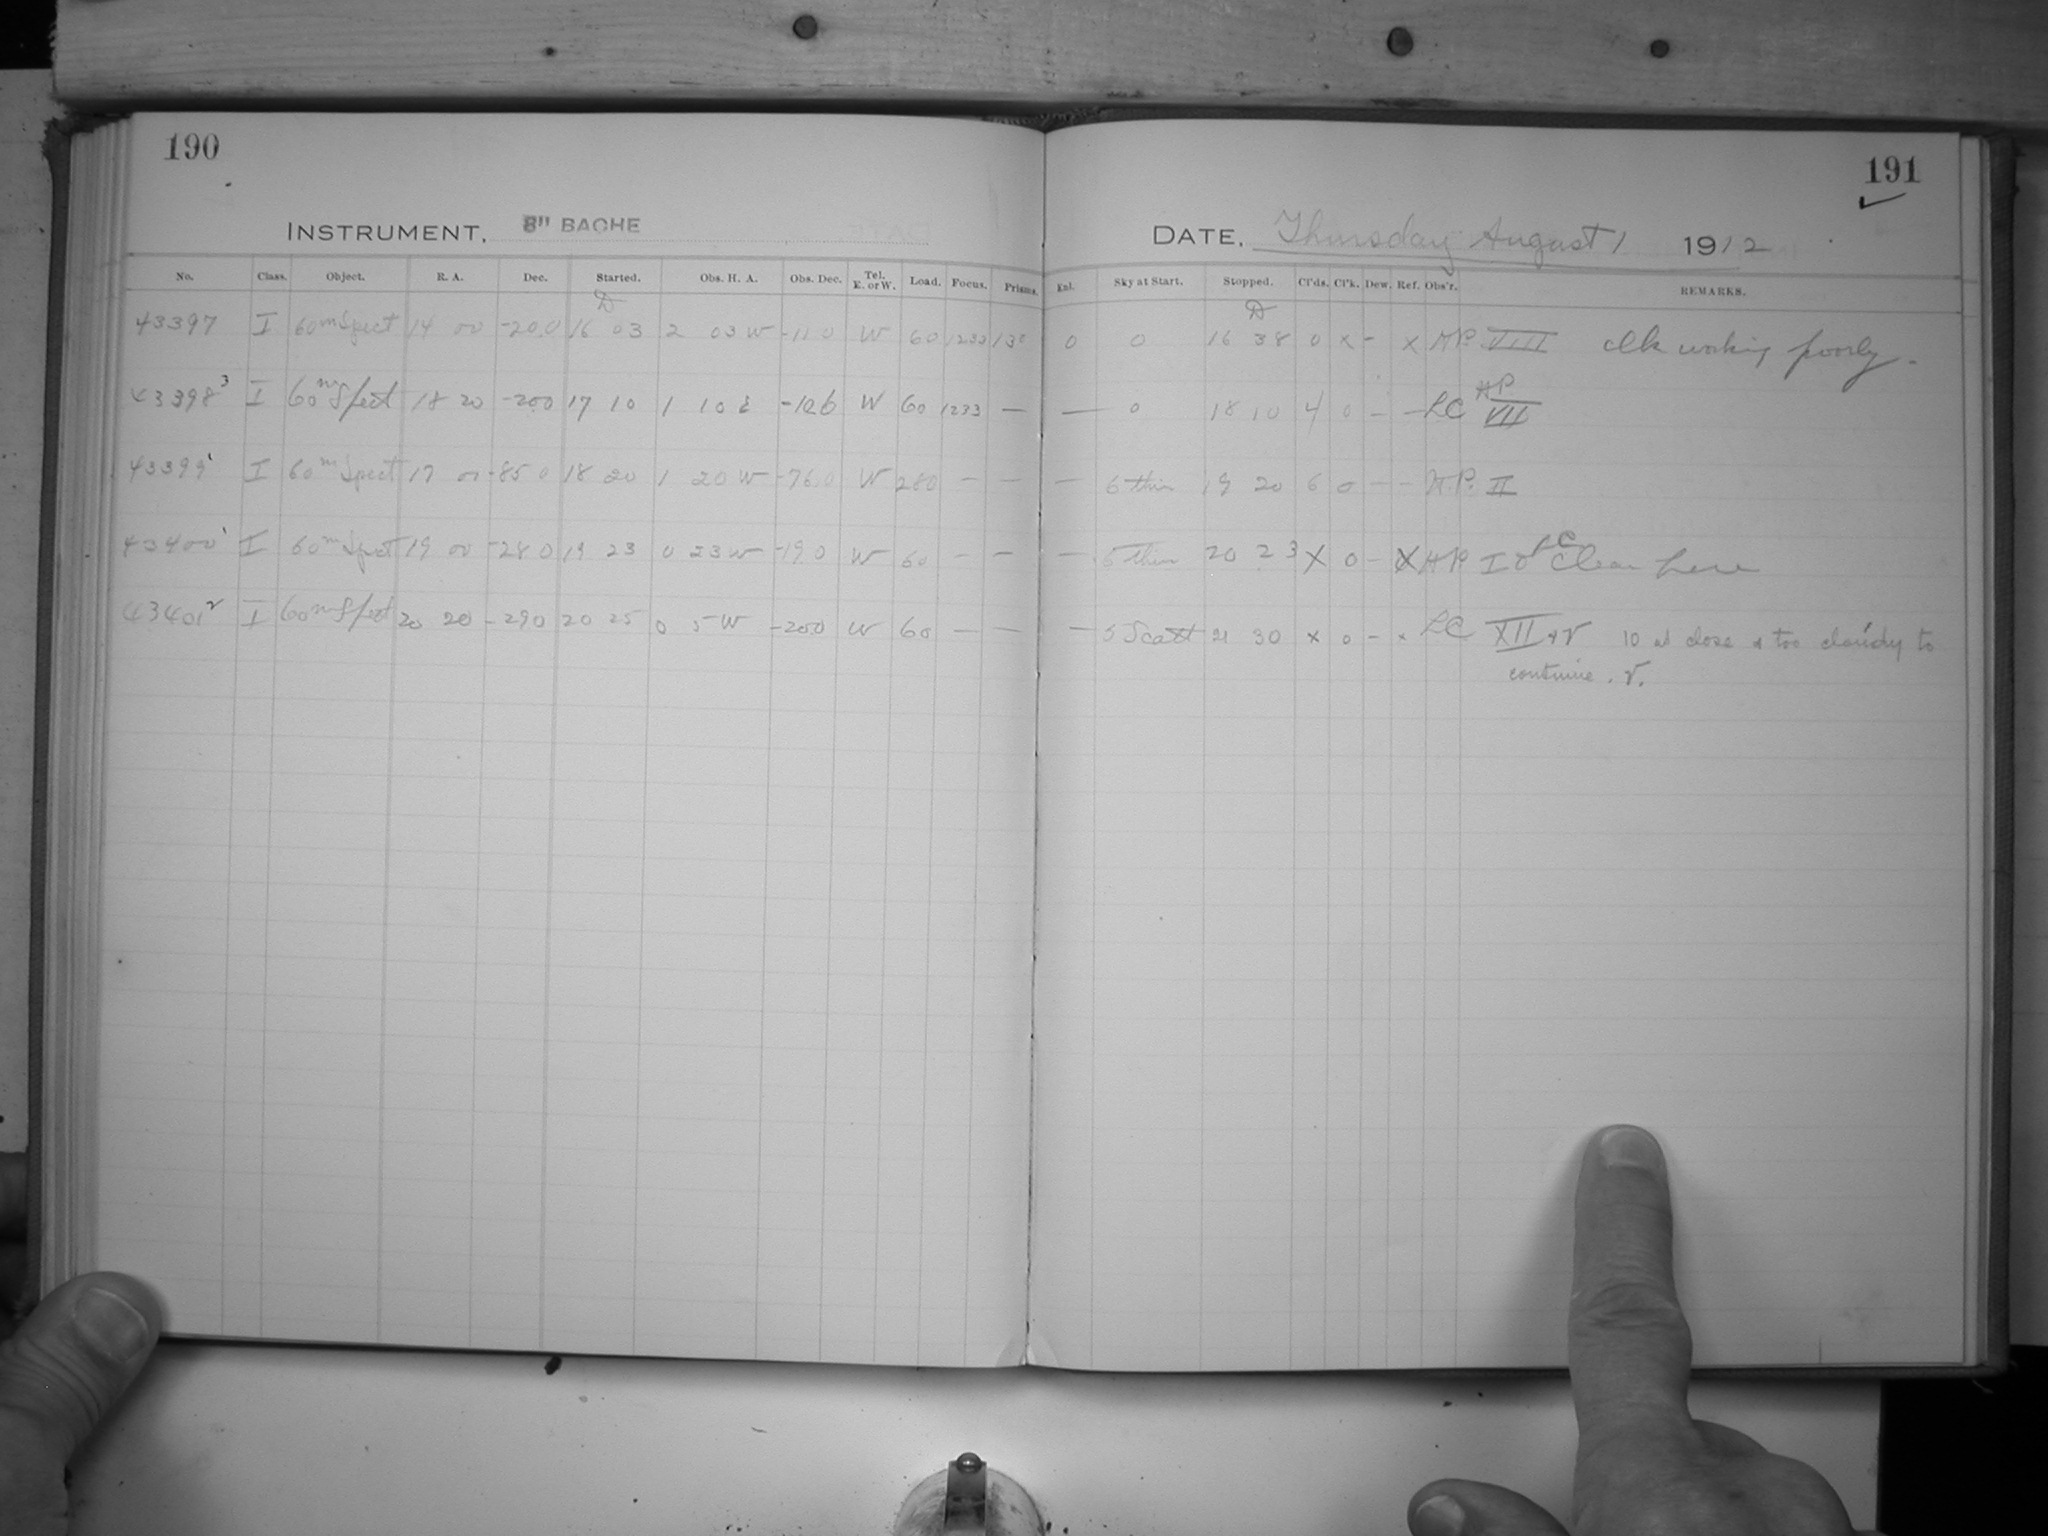 190
191
INSTRUMENT, 8" BACHE
DATE, Thursday August 1 1912
No. Class. Object. R. A. Dec. Started. Obs. H. A. Obs. Dec. Tel. E. or W. Load. Focus. Prisms. Enl. Sky at Start. Stopped. Cl'ds. Cl'k. Dew. Ref. Obs'r. REMARKS.
43397 I 60m Spect 14 00 -20.0 16 03 2 03 W -11 0 W 60 1233 130 0 0 16 38 0 x - x HP VIII clk working poorly.
43398 3 I 60m Spect 18 20 -200 17 10 1 10 E -126 W 60 1233 — — 0 18 10 4 0 - - LC HP VII
43399 1 I 60m Spect 17 00 -85 0 18 20 1 20 W -76.0 W 280 — — — 6 thin 19 20 6 0 - - H.P. II
43400 1 I 60m Spect 19 00 -28 0 19 23 0 23 W -19 0 W 60 - - — 5 thin 20 23 X 0 - X HP I LC Clear here
43401 2 I 60m Spect 20 20 -290 20 25 0 5 W -200 W 60 — — — 5 Scatt 21 30 x 0 - x LC XII + r 10 at close & too cloudy to
continue. r.